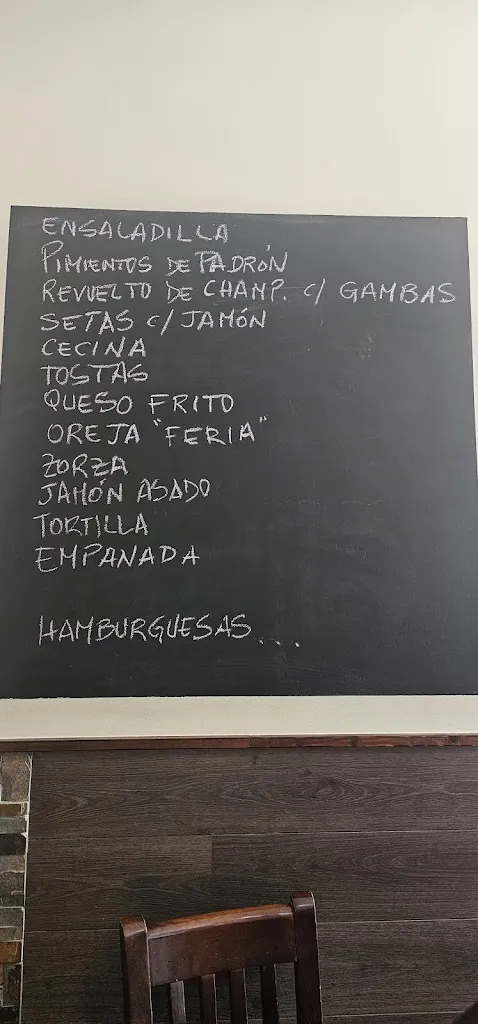 ENSALADILLA
PIMIENTOS DE PADRÓN
REVUELTO DE CHAMP. C/ GAMBAS
SETAS C/ JAMÓN
CECINA
TOSTAS
QUESO FRITO
OREJA "FERIA"
ZORZA
JAMÓN ASADO
TORTILLA
EMPANADA
HAMBURGUESAS...